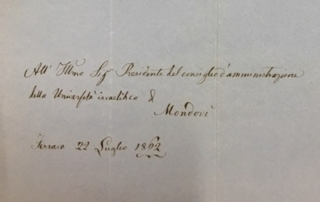 All' Illmo Sig Presidente del consiglio d'amministrazione
della Università israelitica di
Mondovì
Ferrara 22 Luglio 1862